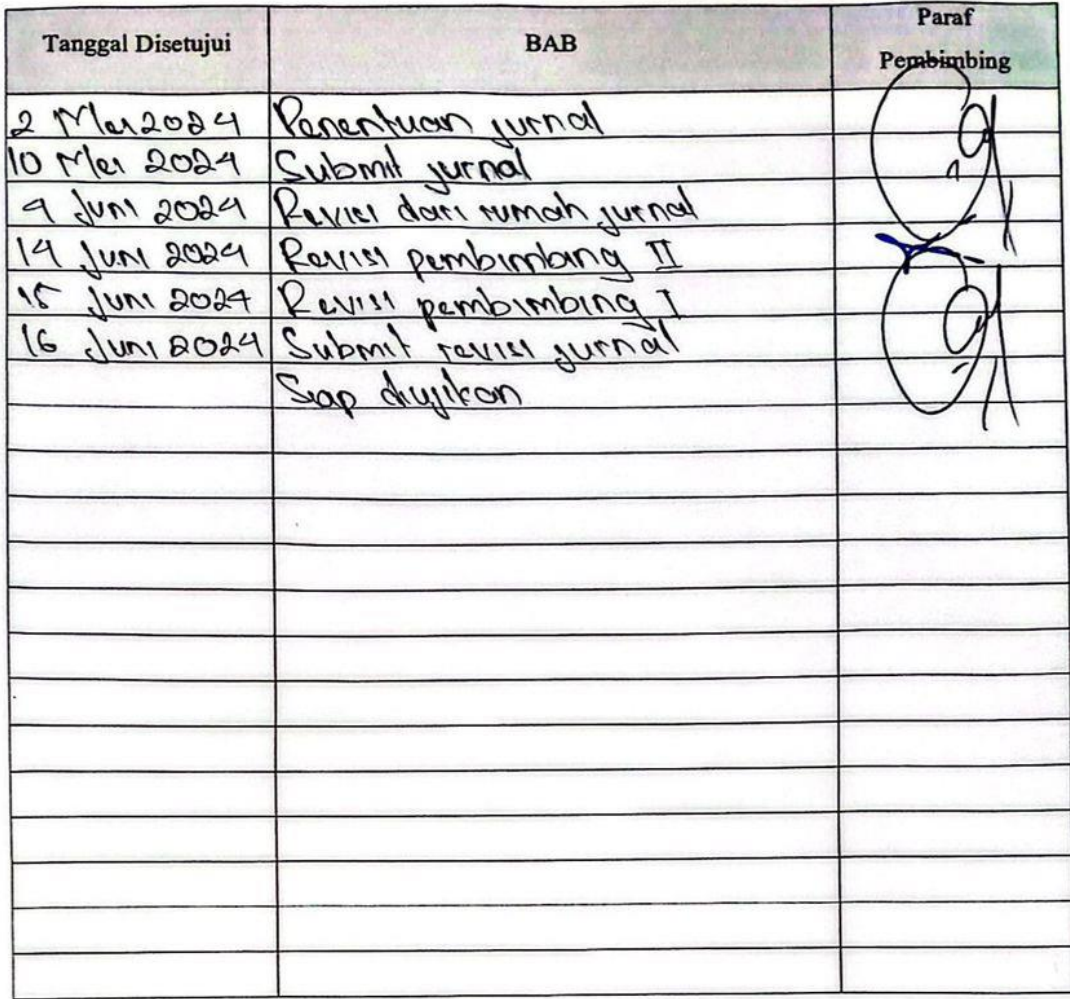 Tanggal Disetujui BAB Paraf Pembimbing
2 Mei 2024 Penentuan jurnal
10 Mei 2024 Submit jurnal
4 Juni 2024 Revisi dari rumah jurnal
14 Juni 2024 Revisi pembimbing II
15 Juni 2024 Revisi pembimbing I
16 Juni 2024 Submit revisi jurnal
Siap diujikan